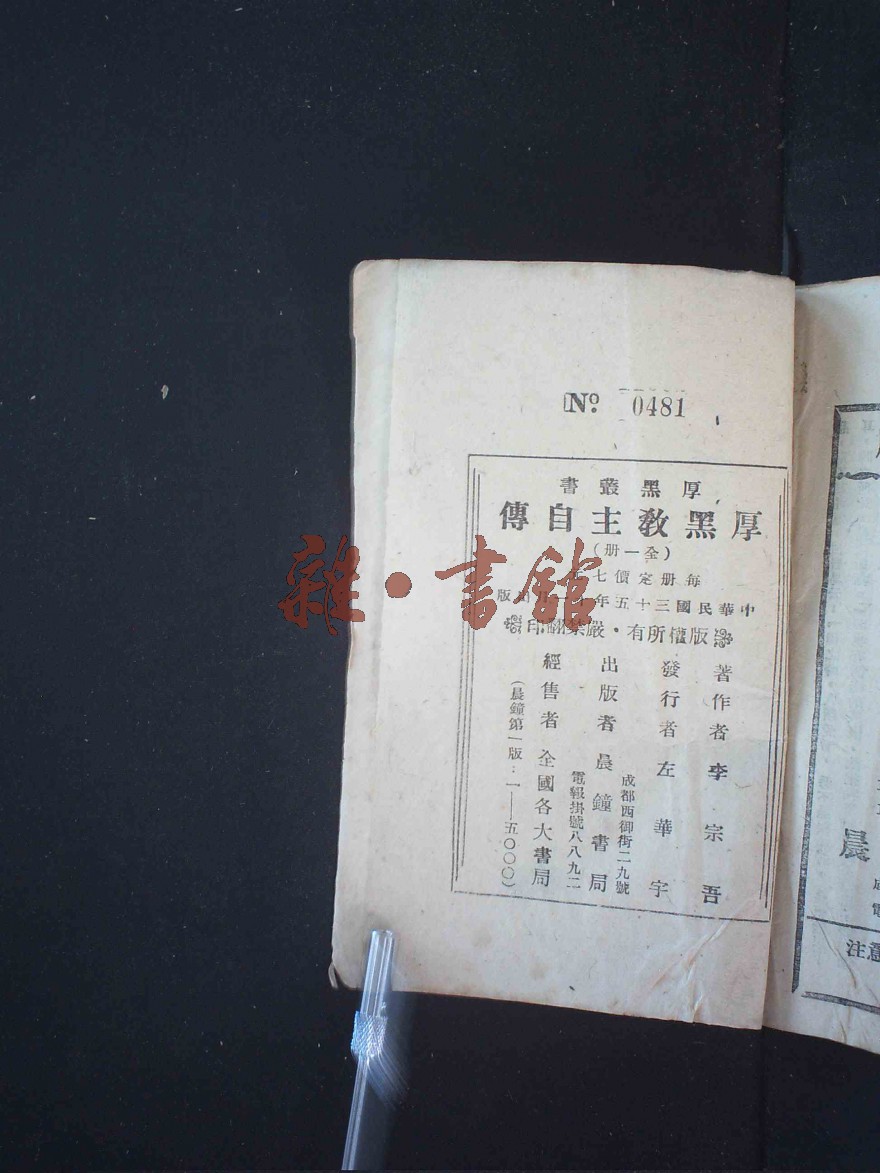 No 0481
厚黑叢書
厚黑敎主自傳
(全一册)
每册定價七
中華民國三十五年十一月出版
版權所有·嚴禁翻印
著作者李宗吾
發行者左華宇
出版者晨鐘書局
成都西御街二九號
電報掛號八八九二
經售者全國各大書局
(晨鐘第一版:一——五〇〇〇)
雜·書館
晨
注意